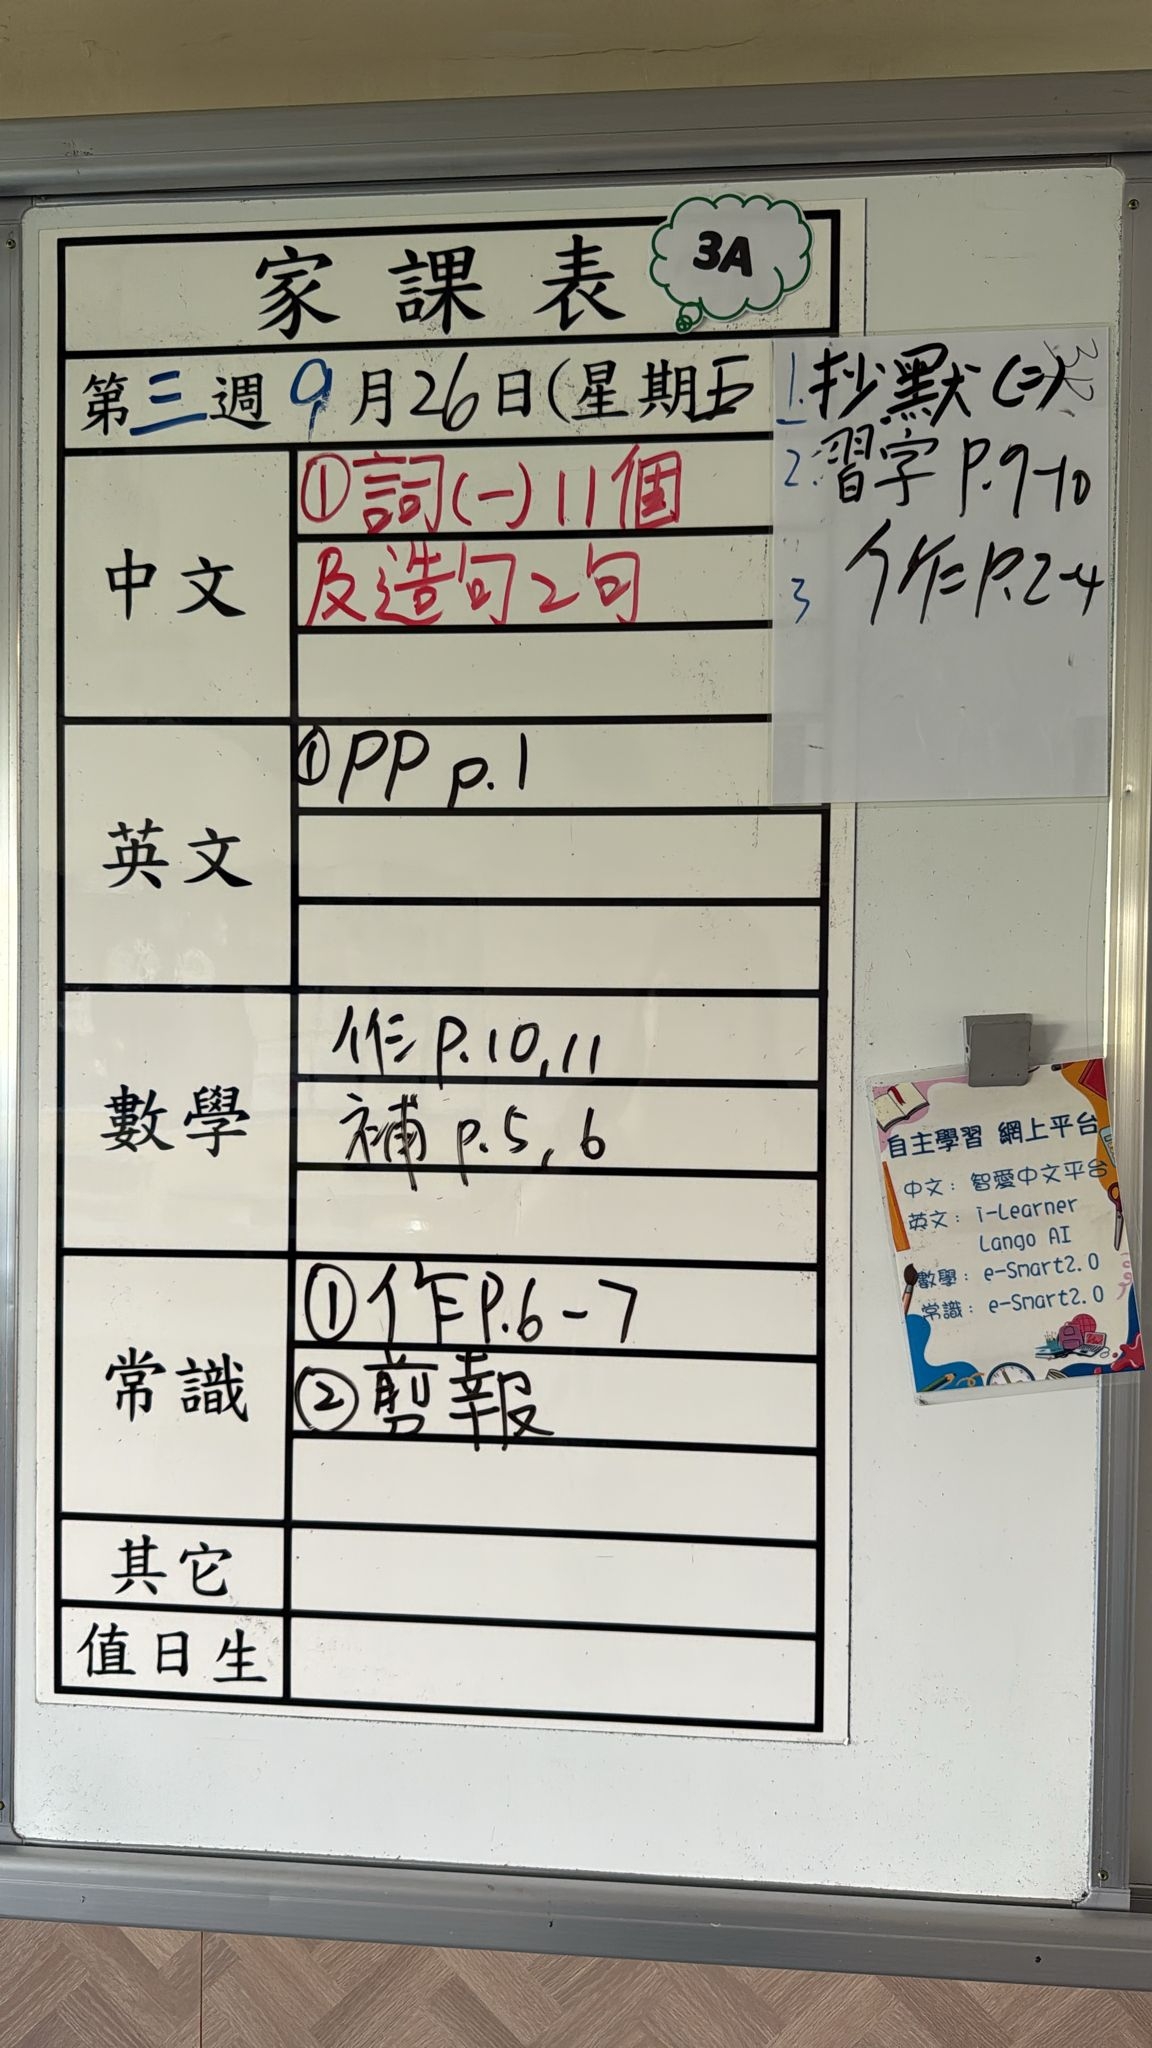 家課表
3A
第三週 9月26日(星期五
中文
①詞(一)11個
及造句2句
1.抄默(二)
2.習字 P.9-10
3 作 P.2-4
英文
①PP p.1
數學
作 P.10,11
補 p.5,6
常識
①作 P.6-7
②剪報
其它
值日生
自主學習 網上平台
中文：智愛中文平台
英文：i-Learner
Lango AI
數學：e-Smart2.0
常識：e-Smart2.0